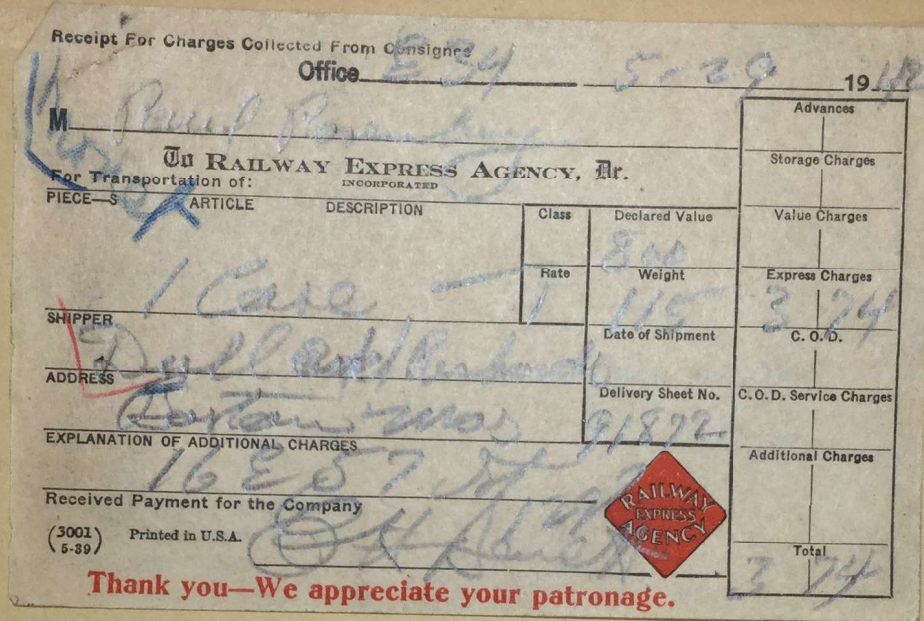 Receipt For Charges Collected From Consignee
Office E 34 5-29 1942
M Paul Rosenberg
To RAILWAY EXPRESS AGENCY, Dr.
INCORPORATED
For Transportation of:
PIECE—S ARTICLE DESCRIPTION
1 Case
Class
Rate
1
Declared Value
800
Weight
115
Date of Shipment
Delivery Sheet No.
91872
SHIPPER
Doll and Richards
ADDRESS
Boston Mas
EXPLANATION OF ADDITIONAL CHARGES
16 E 57 St
Received Payment for the Company
(3001)
5-39
Printed in U.S.A.
RAILWAY
EXPRESS
AGENCY
Advances
Storage Charges
Value Charges
Express Charges
3 74
C.O.D.
C.O.D. Service Charges
Additional Charges
Total
3 74
Thank you—We appreciate your patronage.